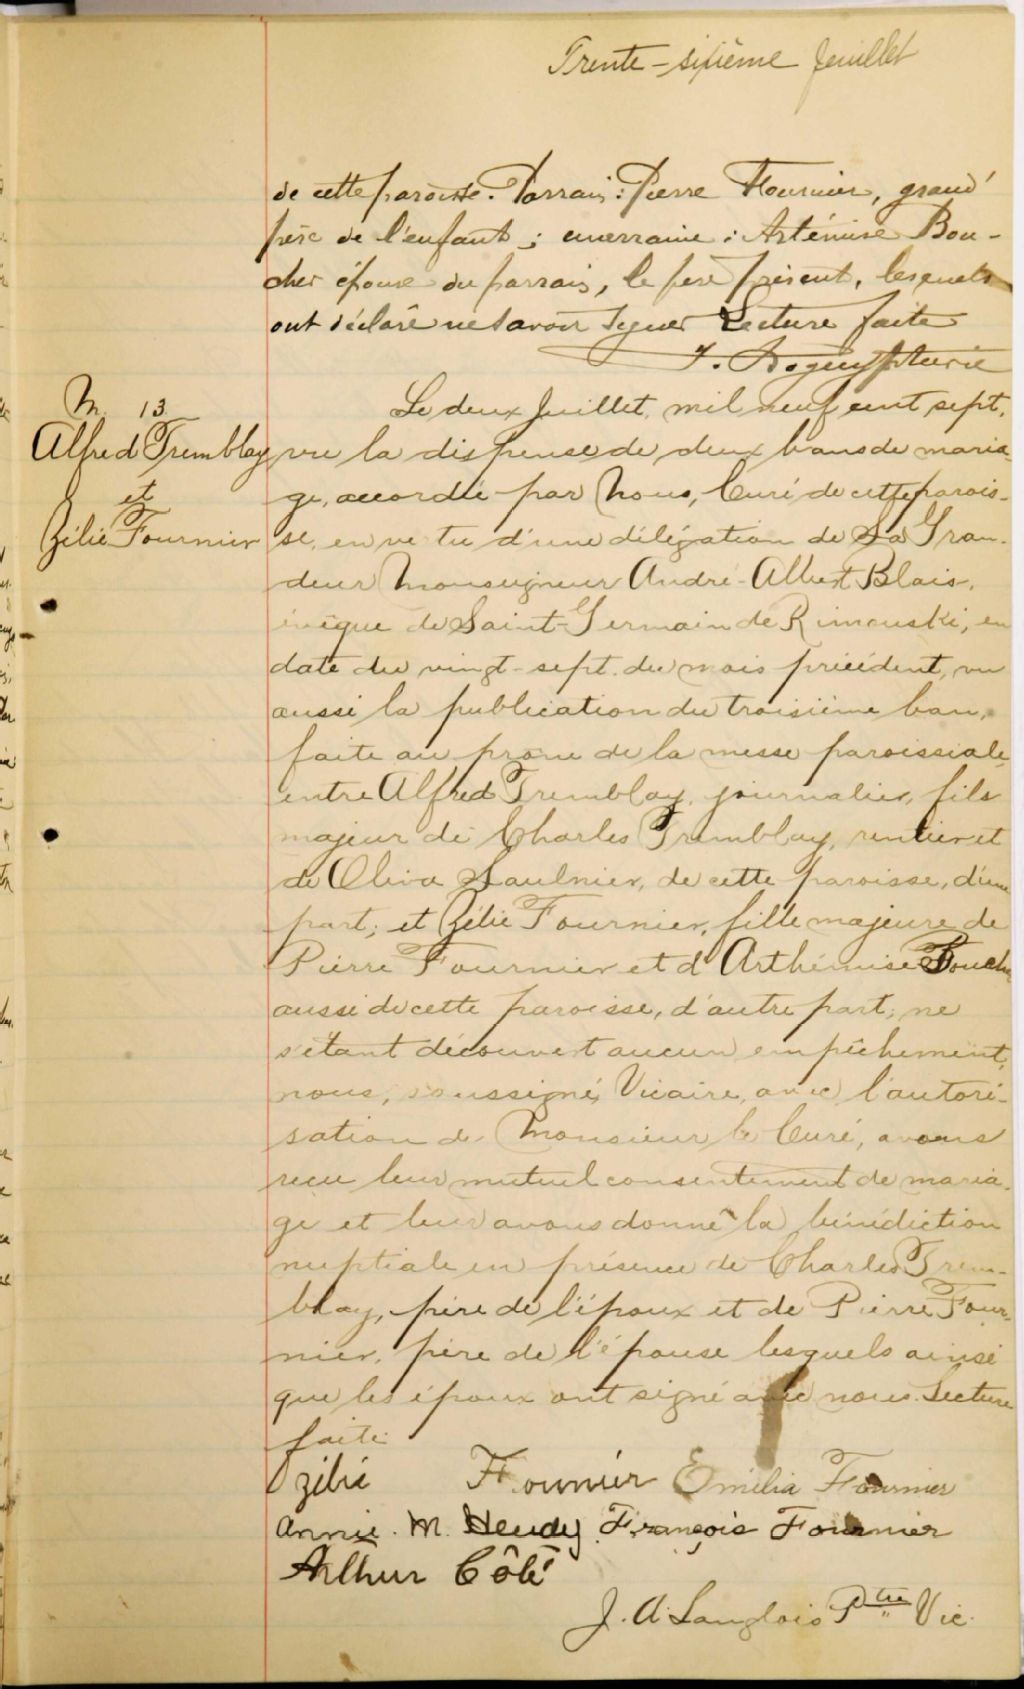 Trente-sixième feuillet
de cette paroisse. Parrain : Pierre Fournier, grand'
père de l'enfant ; marraine : Artémise Bou-
cher épouse du parrain, le père présent, lesquels
ont déclaré ne savoir signer Lecture faite
M. 13
Alfred Tremblay
et
Zélie Fournier
Le deux Juillet, mil neuf cent sept,
vu la dispense de deux bans de maria-
ge, accordée par Nous, Curé de cette parois-
se, en vertu d'une délégation de Sa Gran-
deur Monseigneur André-Albert Blais,
évêque de Saint-Germain de Rimouski, en
date du vingt-sept du mois précédent, vu
aussi la publication du troisième ban,
faite au prône de la messe paroissiale,
entre Alfred Tremblay, journalier, fils
majeur de Charles Tremblay, rentier et
de Oliva Saulnier, de cette paroisse, d'une
part; et Zélie Fournier, fille majeure de
Pierre Fournier et d'Arthémise Boucher
aussi de cette paroisse, d'autre part; ne
s'étant découvert aucun empêchement,
nous, soussigné, Vicaire, avec l'autori-
sation de Monsieur le Curé, avons
reçu leur mutuel consentement de maria-
ge et leur avons donné la bénédiction
nuptiale en présence de Charles Trem-
blay, père de l'époux et de Pierre Four-
nier, père de l'épouse lesquels ainsi
que les époux ont signé avec nous. Lecture
faite.
Zélié Fournier Emélia Fournier
Annie. M. Heudy. François Fournier
Arthur Côté
J. A. Langlois Ptre Vic.